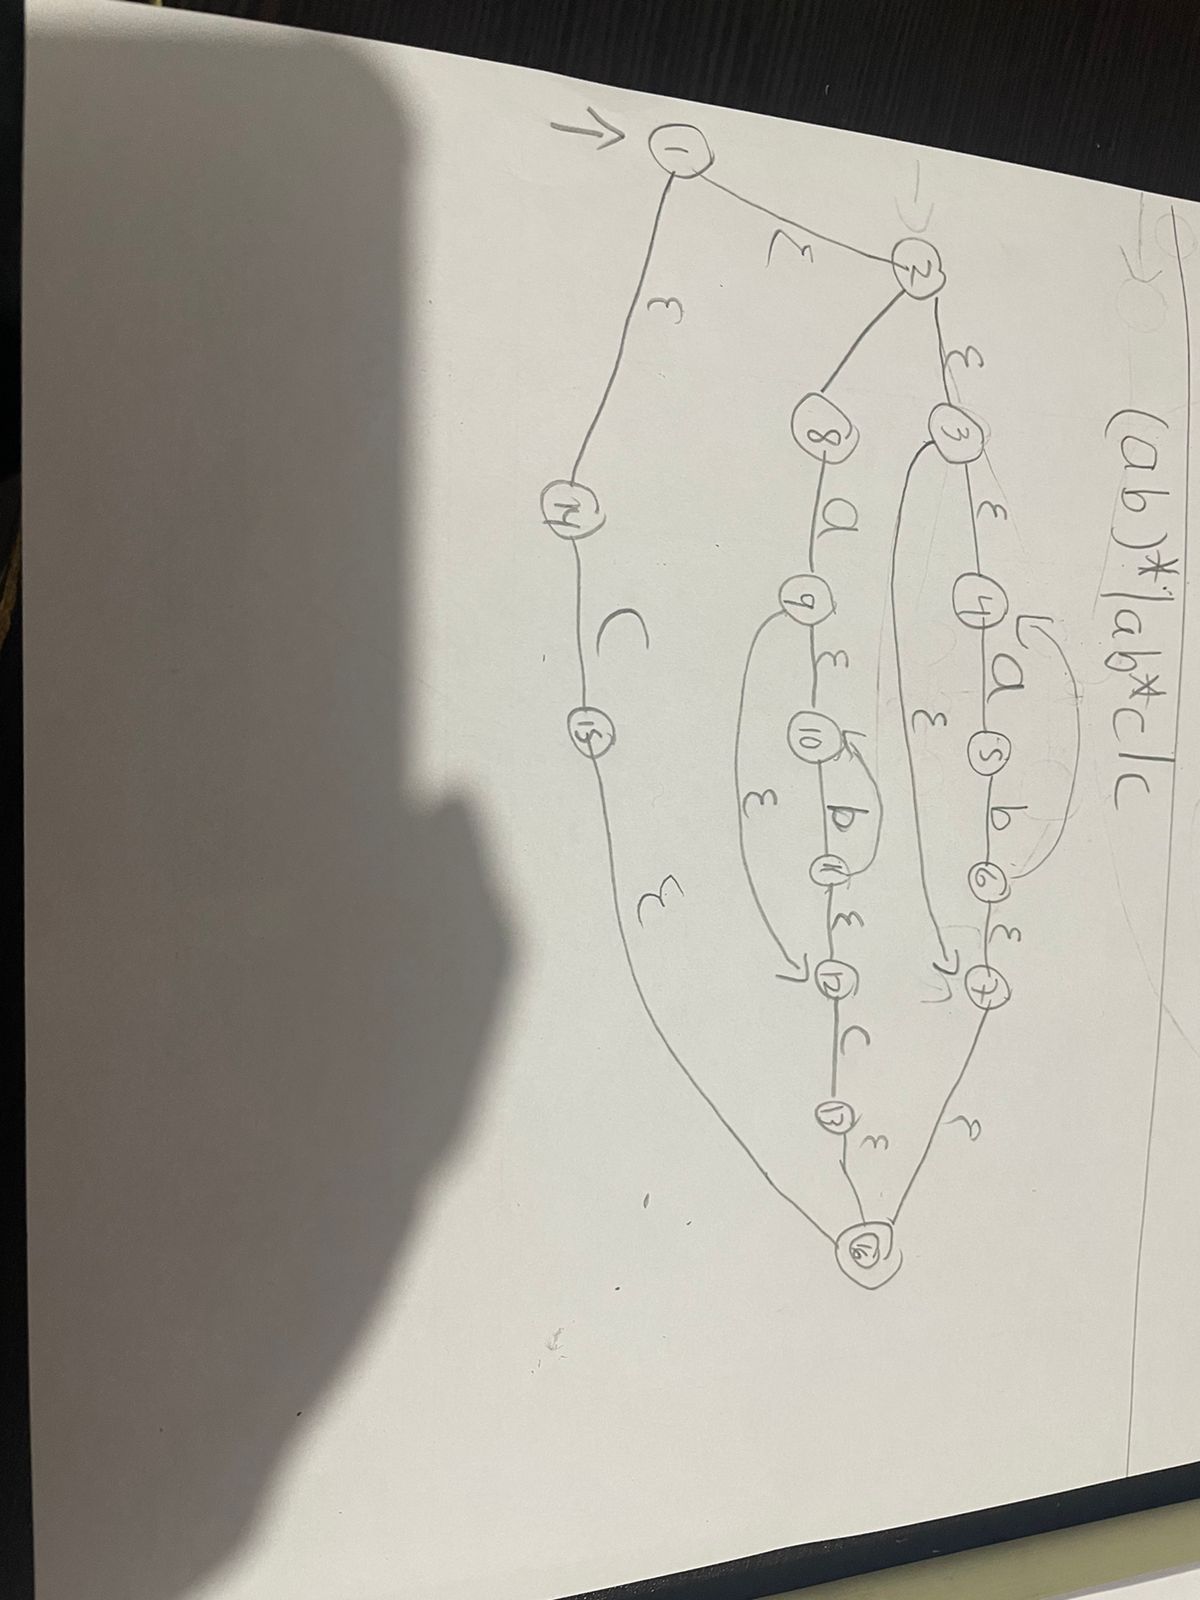 (ab)*|ab*c|c
ε
ε
3 ε 4 a 5 b 6 ε 7
2
ε
ε
8 a 9 ε 10 b 11 ε 12 c 13 ε
16
ε
ε
1
ε
14 C 15
ε